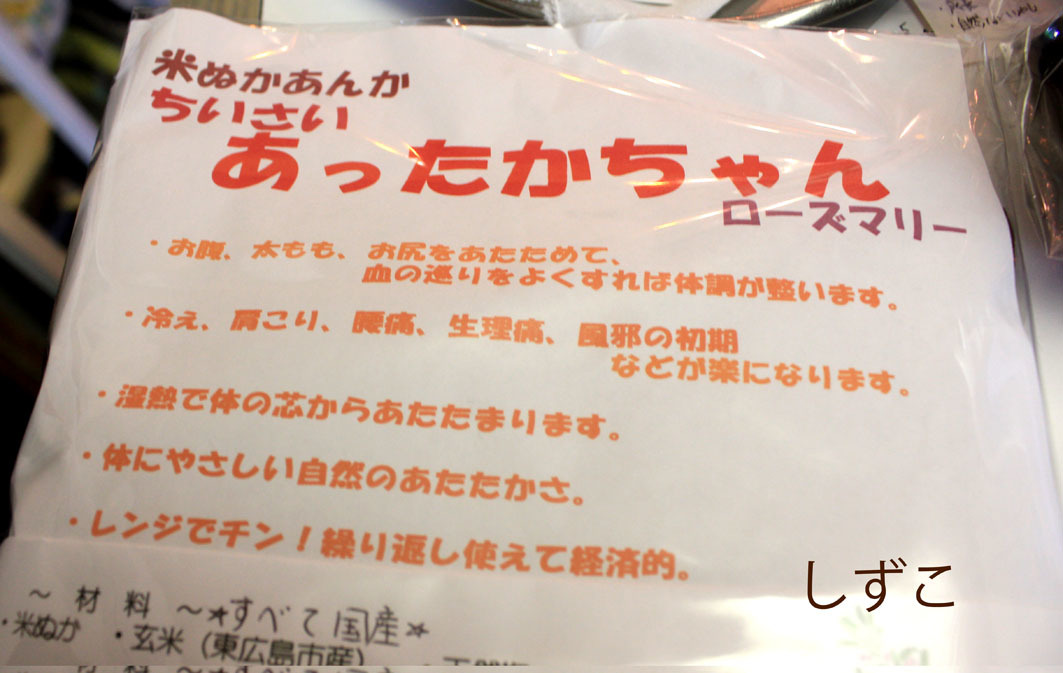 米ぬかあんか
ちいさい
あったかちゃん
ローズマリー
・お腹、太もも、お尻をあたためて、
血の巡りをよくすれば体調が整います。
・冷え、肩こり、腰痛、生理痛、風邪の初期
などが楽になります。
・湿熱で体の芯からあたたまります。
・体にやさしい自然のあたたかさ。
・レンジでチン！繰り返し使えて経済的。
しずこ
～材料～★すべて国産★
・米ぬか ・玄米（東広島市産）